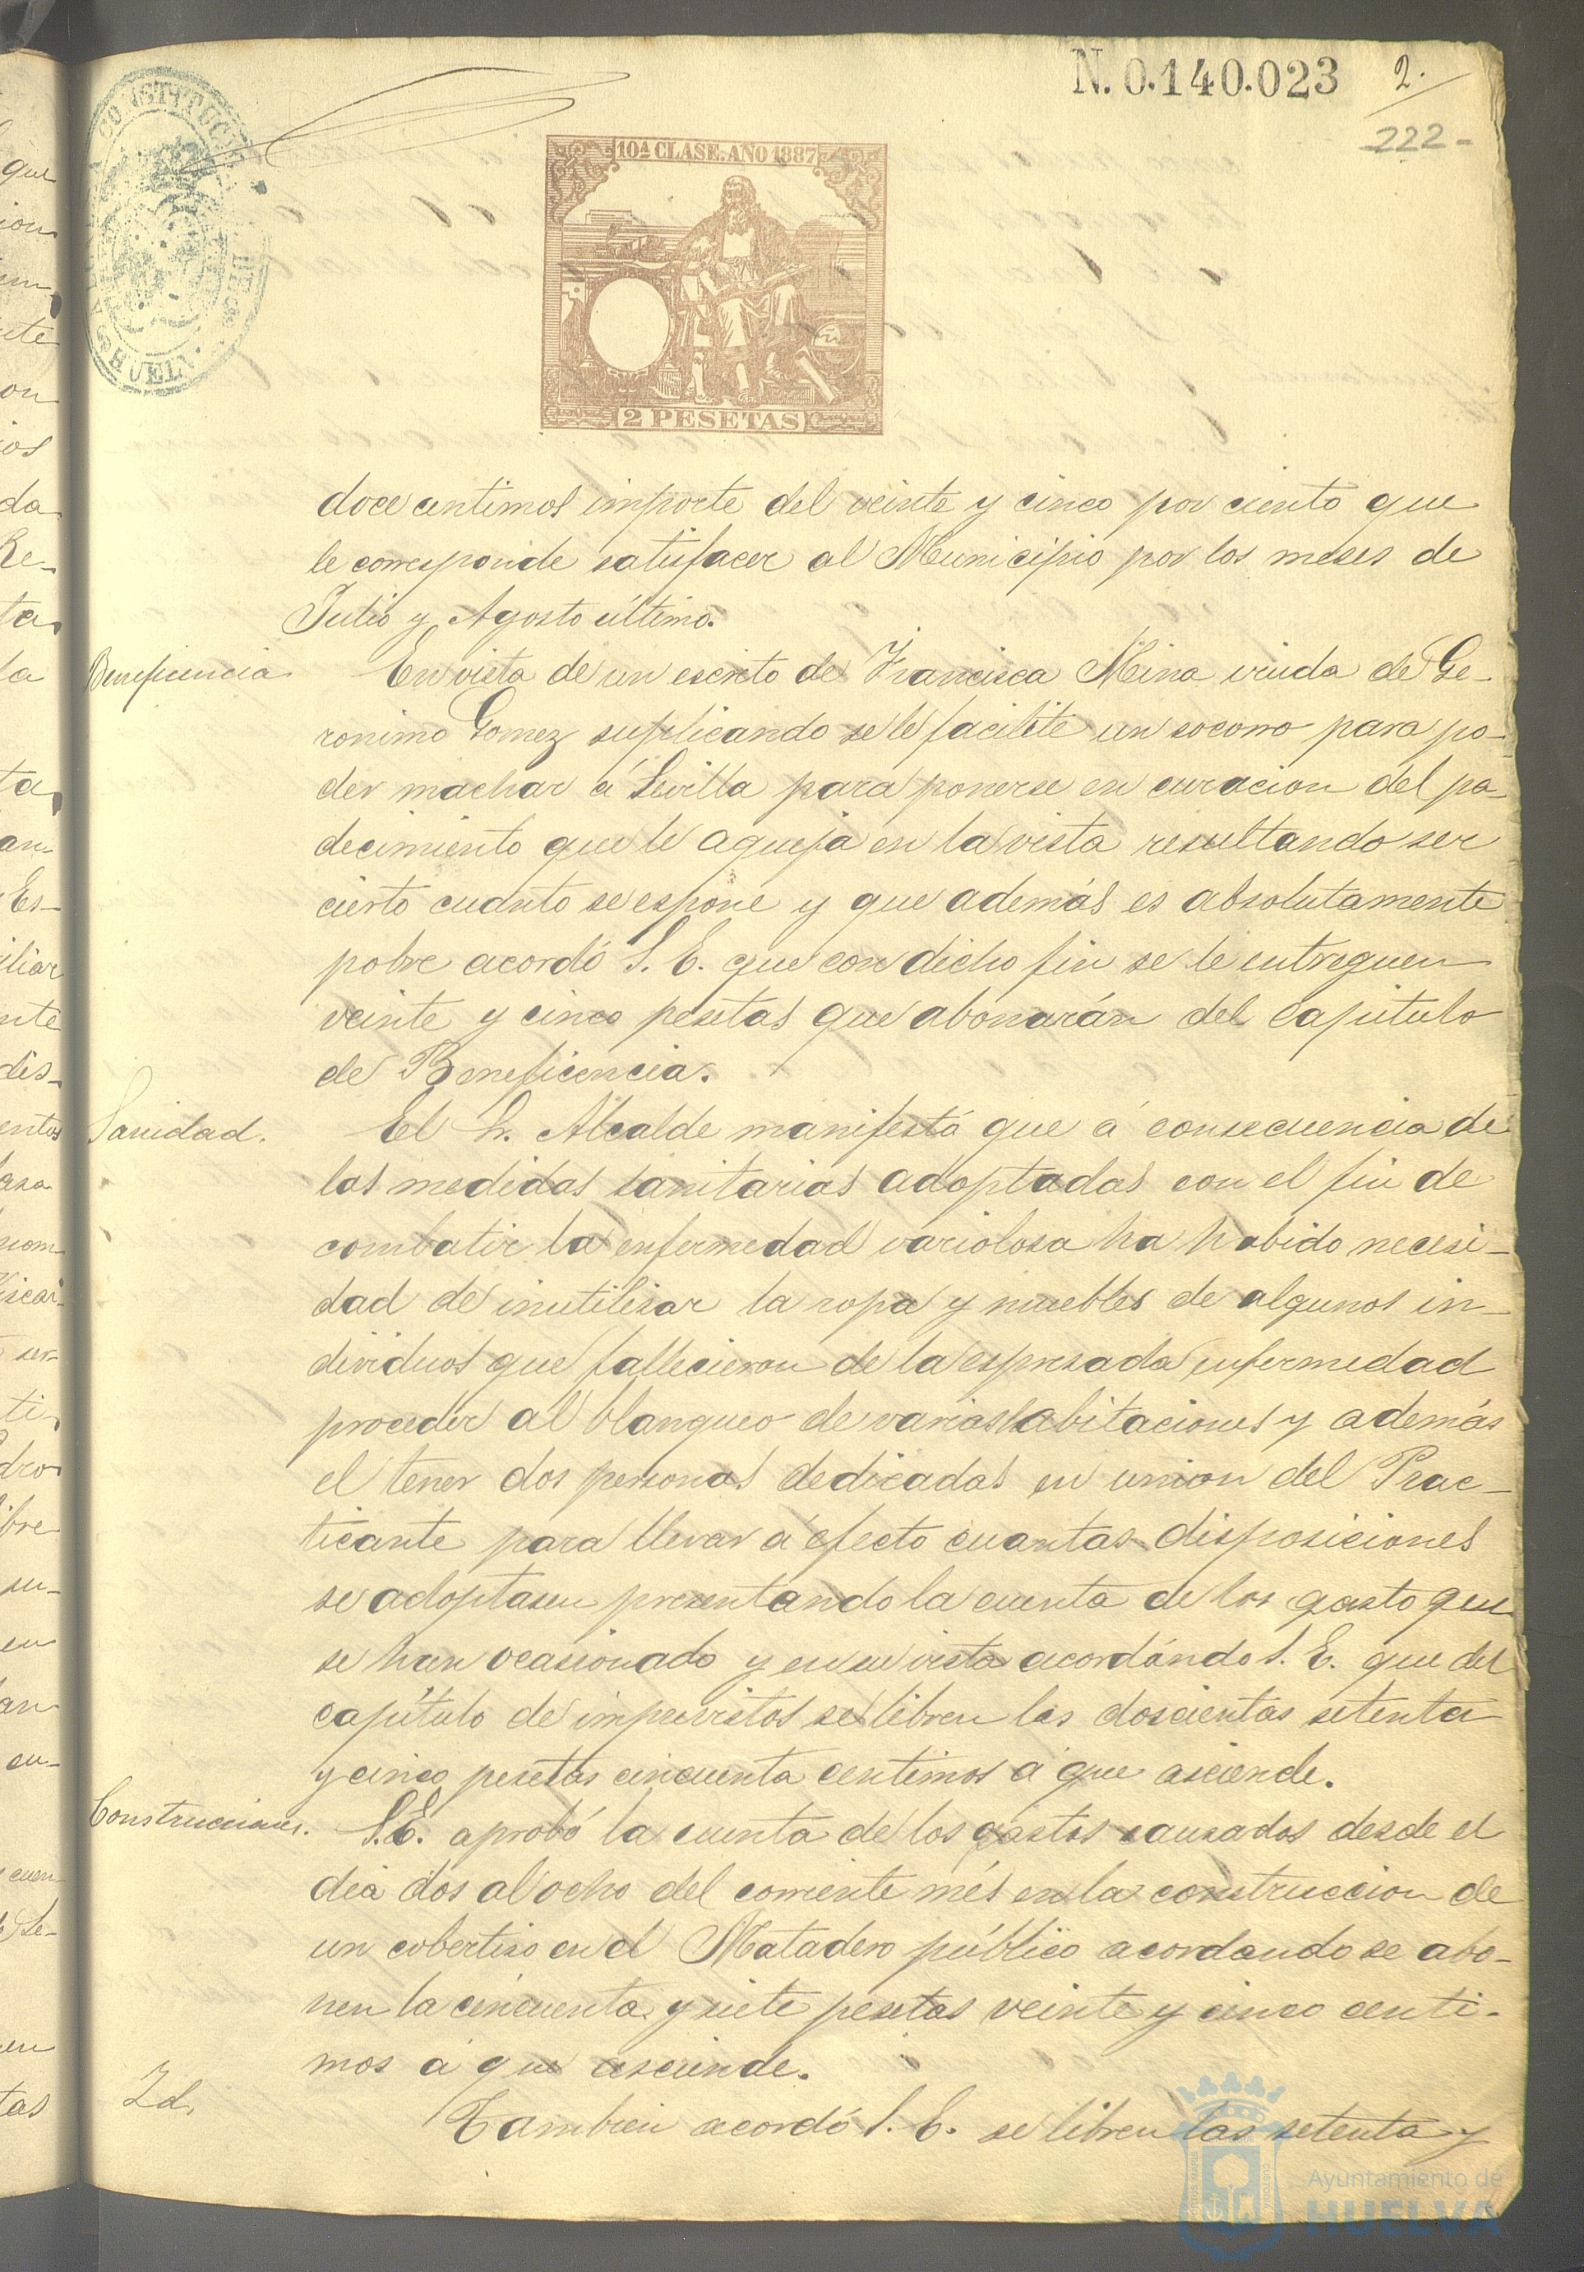 N. 0.140.023
2.
222-
CONSTITUC
HUELV
10ª CLASE. AÑO 1887
2 PESETAS
doce centimos importe del veinte y cinco por ciento que
le corresponde satisfacer al Municipio por los meses de
Julio y Agosto último.
Beneficencia
En vista de un escrito de Francisca Mina viuda de Ge-
ronimo Gomez suplicando se le facilite un socorro para po-
der machar á Sevilla para ponerse en curacion del pa-
decimiento que le aqueja en la vista resultando ser
cierto cuanto se espone y que además es absolutamente
pobre acordó S. E. que con dicho fin se le entreguen
veinte y cinco pesetas que abonarán del capitulo
de Beneficencia.
Sanidad.
El Sr. Alcalde manifestó que á consecuencia de
las medidas sanitarias adoptadas con el fin de
combatir la enfermedad variolosa ha habido necesi-
dad de inutilizar la ropa y muebles de algunos in-
dividuos que fallecieron de la espresada enfermedad
proceder al blanqueo de varias habitaciones y además
el tener dos personas dedicadas en union del Prac-
ticante para llevar á efecto cuantas disposiciones
se adoptasen presentando la cuenta de los gasto que
se han ocasionado y en su vista acordándo S. E. que del
capítulo de imprevistos se libren las doscientas setenta
y cinco pesetas cincuenta centimos á que asciende.
Construcciones.
S. E. aprobó la cuenta de los gastos causados desde el
dia dos al ocho del corriente més en la construccion de
un cobertizo en el Matadero público acordando se abo-
nen la cincuenta y siete pesetas veinte y cinco centi-
mos á que asciende.
Id.
Tambien acordó S. E. se libren las setenta y
Ayuntamiento de
HUELVA